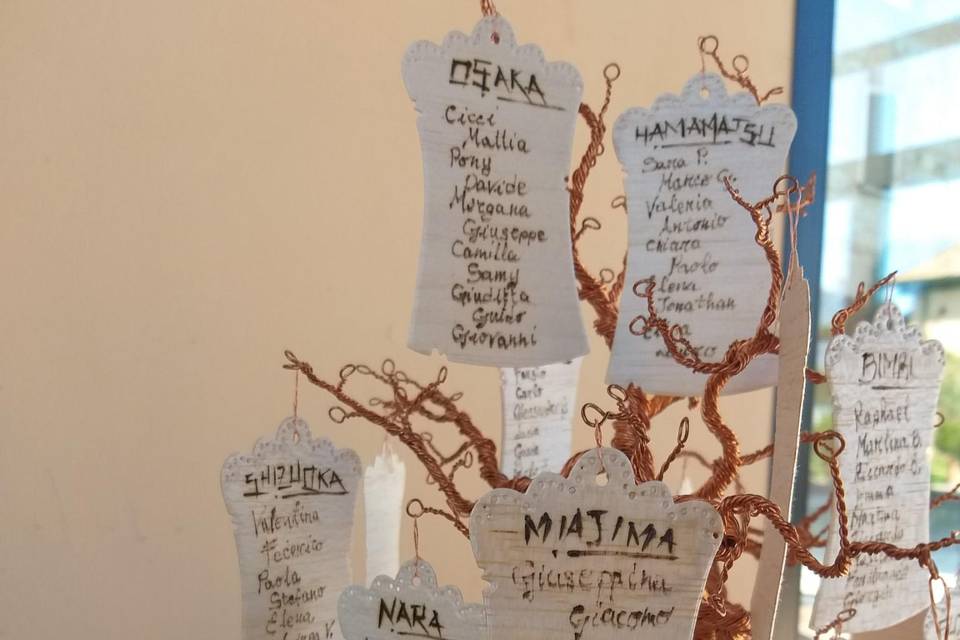 OSAKA
Cicci
Mattia
Pony
Davide
Morgana
Giuseppe
Camilla
Samy
Giuditta
Guido
Giovanni
HAMAMATSU
Sara P.
Marco G.
Valeria
Antonio
Chiara
Paolo
Elena
Jonathan
BIMBI
Raphael
Martina B.
Riccardo C.
Emma
Carlo
SHIZUOKA
Valentina
Federico
Paola
Stefano
Elena
NARA
MIAJIMA
Giuseppina
Giacomo